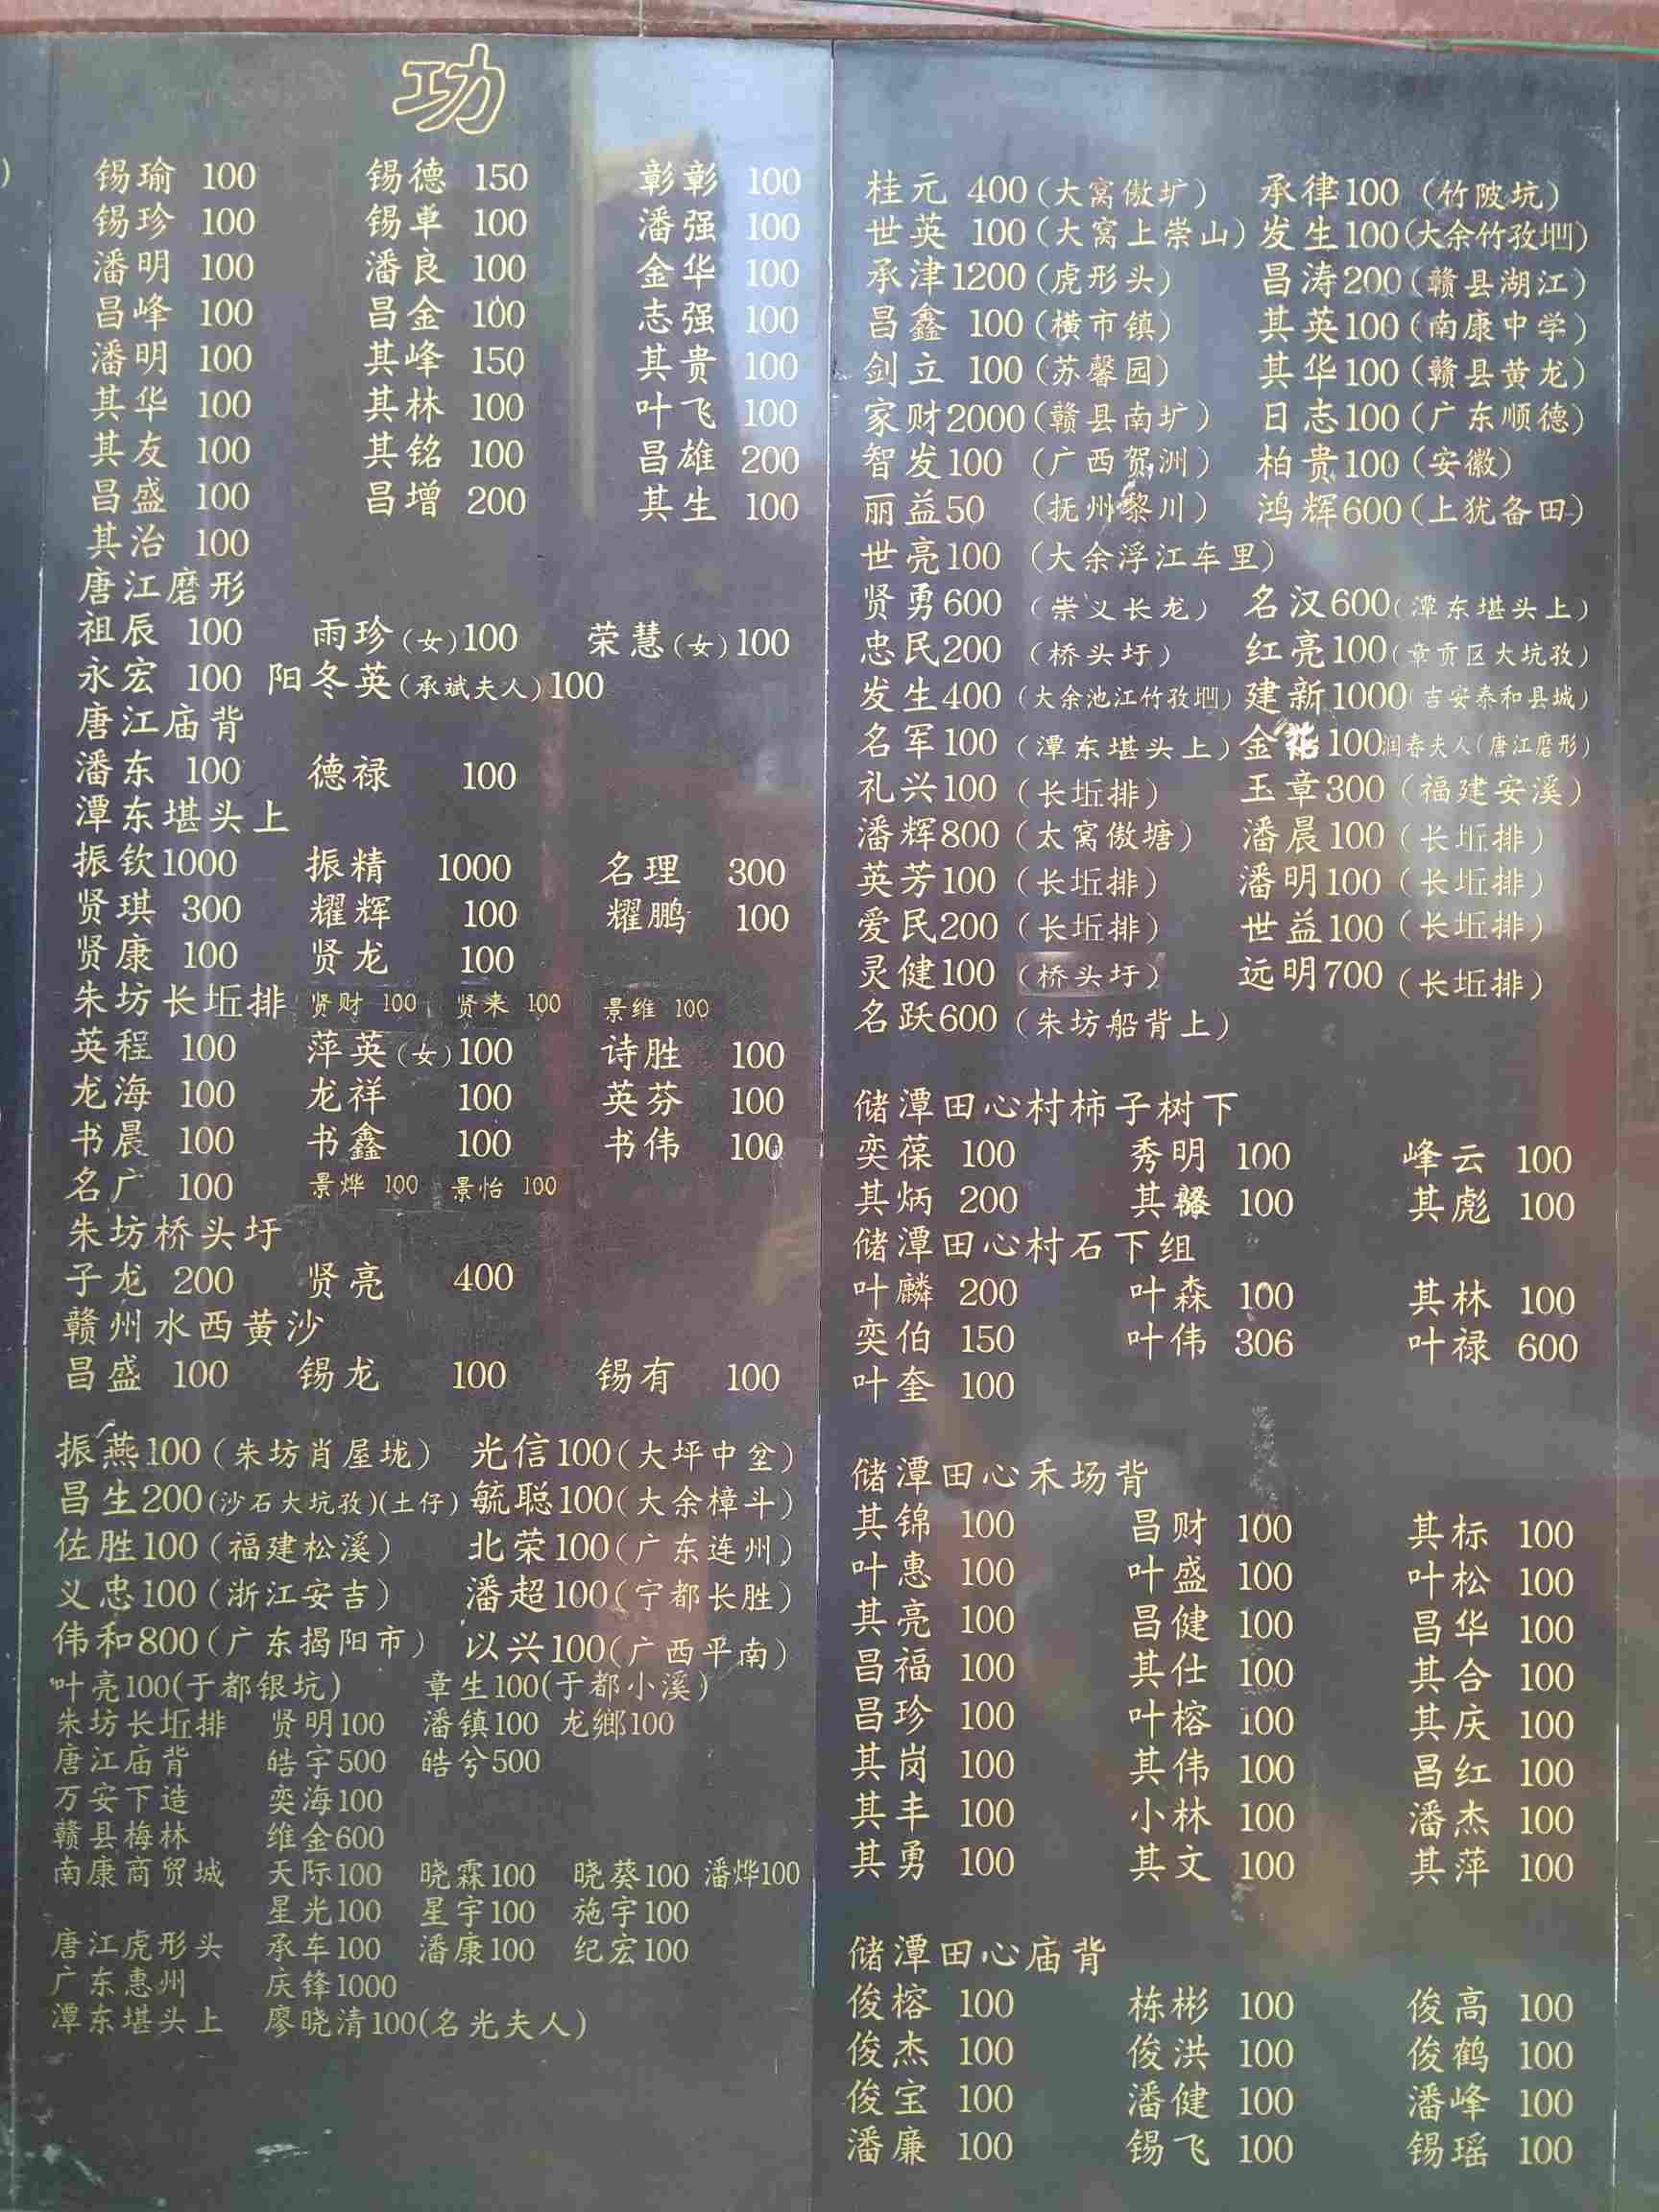 功
锡瑜 100 锡德 150 彰彰 100
锡珍 100 锡卓 100 潘强 100
潘明 100 潘良 100 金华 100
昌峰 100 昌金 100 志强 100
潘明 100 其峰 150 其贵 100
其华 100 其林 100 叶飞 100
其友 100 其铭 100 昌雄 200
昌盛 100 昌增 200 其生 100
其治 100
唐江磨形
祖辰 100 雨珍(女)100 荣慧(女)100
永宏 100 阳冬英(承斌夫人)100
唐江庙背
潘东 100 德禄 100
潭东堪头上
振钦1000 振精 1000 名理 300
贤琪 300 耀辉 100 耀鹏 100
贤康 100 贤龙 100
朱坊长坵排 贤财 100 贤来 100 景维 100
英程 100 萍英(女)100 诗胜 100
龙海 100 龙祥 100 英芬 100
书晨 100 书鑫 100 书伟 100
名广 100 景烨 100 景怡 100
朱坊桥头圩
子龙 200 贤亮 400
赣州水西黄沙
昌盛 100 锡龙 100 锡有 100
振燕100(朱坊肖屋垅) 光信100(大坪中坌)
昌生200(沙石大坑孜)(土仔) 毓聪100(大余樟斗)
佐胜100(福建松溪) 北荣100(广东连州)
义忠100(浙江安吉) 潘超100(宁都长胜)
伟和800(广东揭阳市) 以兴100(广西平南)
叶亮100(于都银坑) 章生100(于都小溪)
朱坊长坵排 贤明100 潘镇100 龙鄉100
唐江庙背 皓宇500 皓兮500
万安下造 奕海100
赣县梅林 维金600
南康商贸城 天际100 晓霖100 晓葵100 潘烨100
星光100 星宇100 施宇100
唐江虎形头 承车100 潘康100 纪宏100
广东惠州 庆锋1000
潭东堪头上 廖晓清100(名光夫人)
桂元 400(大窝傲圹) 承律100 (竹陂坑)
世英 100(大窝上崇山) 发生100(大余竹孜)
承津1200(虎形头) 昌涛200(赣县湖江)
昌鑫 100(横市镇) 其英100(南康中学)
剑立 100(苏馨园) 其华100(赣县黄龙)
家财2000(赣县南圹) 日志100(广东顺德)
智发100 (广西贺洲) 柏贵100(安徽)
丽益50 (抚州黎川) 鸿辉600(上犹备田)
世亮100 (大余浮江车里)
贤勇600 (崇义长龙) 名汉600(潭东堪头上)
忠民200 (桥头圩) 红亮100(章贡区大坑孜)
发生400 (大余池江竹孜) 建新1000(吉安泰和县城)
名军100 (潭东堪头上) 金花100润春夫人(唐江磨形)
礼兴100 (长坵排) 玉章300 (福建安溪)
潘辉800 (太窝傲塘) 潘晨100 (长坵排)
英芳100 (长坵排) 潘明100 (长坵排)
爱民200 (长坵排) 世益100 (长坵排)
灵健100 (桥头圩) 远明700 (长坵排)
名跃600 (朱坊船背上)
储潭田心村柿子树下
奕葆 100 秀明 100 峰云 100
其炳 200 其 100 其彪 100
储潭田心村石下组
叶麟 200 叶森 100 其林 100
奕伯 150 叶伟 306 叶禄 600
叶奎 100
储潭田心禾场背
其锦 100 昌财 100 其标 100
叶惠 100 叶盛 100 叶松 100
其亮 100 昌健 100 昌华 100
昌福 100 其仕 100 其合 100
昌珍 100 叶榕 100 其庆 100
其岗 100 其伟 100 昌红 100
其丰 100 小林 100 潘杰 100
其勇 100 其文 100 其萍 100
储潭田心庙背
俊榕 100 栋彬 100 俊高 100
俊杰 100 俊洪 100 俊鹤 100
俊宝 100 潘健 100 潘峰 100
潘廉 100 锡飞 100 锡瑶 100